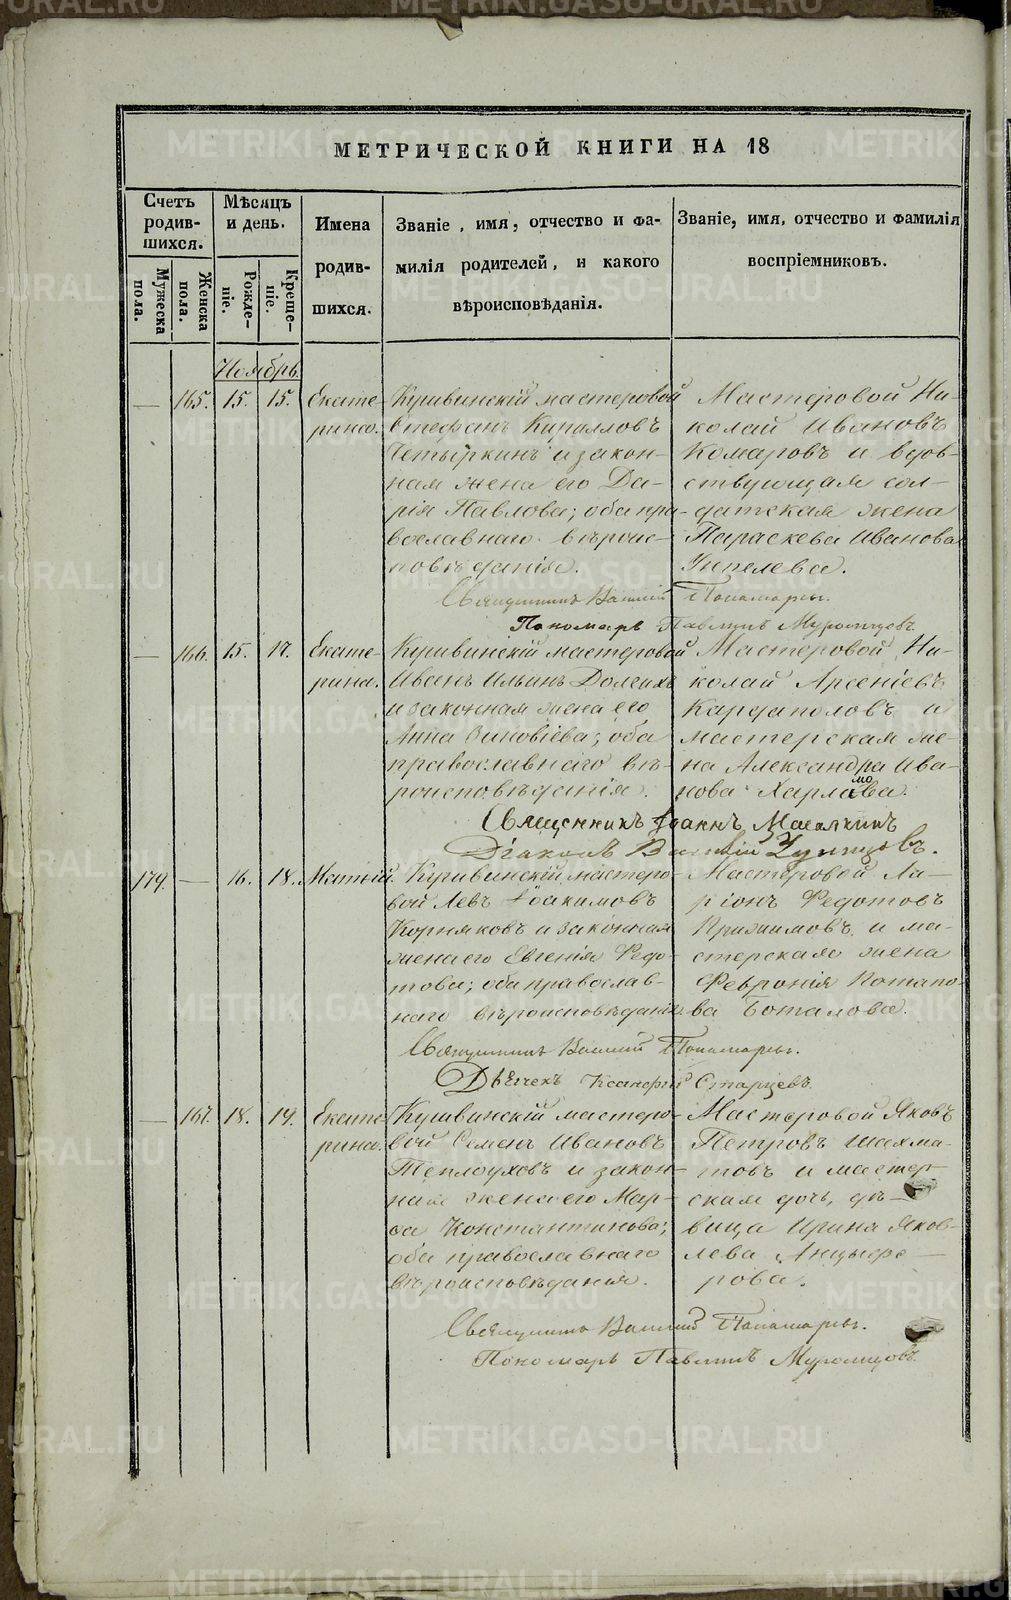 МЕТРИЧЕСКОЙ КНИГИ НА 18
Счетъ родив-шихся.
Мужеска пола.
Женска пола.
Мѣсяцъ и день.
Рожде-ніе.
Креще-ніе.
Имена родив-шихся.
Званіе, имя, отчество и фа-
милія родителей, и какого
вѣроисповѣданія.
Званіе, имя, отчество и фамилія
воспріемниковъ.
Ноябрь.
— 165. 15. 15. Екате-
рина.
Кушвинскій мастеровой
Стефанъ Кирилловъ
Четыркинъ и закон-
ная жена его Да-
рія Павлова; оба пра-
вославнаго вѣроис-
повѣданія.
Мастеровой Ни-
колай Ивановъ
Комаровъ и вдов-
ствующая сол-
датская жена
Параскева Иванова
Священникъ Василій Пономаревъ.
Пономарь Павлинъ Муромцовъ
— 166. 15. 17. Екате-
рина.
Кушвинскій мастеровой
Иванъ Ильинъ Долгихъ
и законная жена его
Анна Зиновіева; оба
православнаго вѣ-
роисповѣданія.
Мастеровой Ни-
колай Арсеніевъ
Каргаполовъ и
мастерская же-
на Александра Ива-
нова Харламова.
Священникъ Іоаннъ
Діаконъ Василій
179. — 16. 18. Матѳій.
Кушвинскій мастеро-
вой Левъ Іоакимовъ
Корняковъ и законная
жена его Евгенія Ѳедо-
това; оба православ-
наго вѣроисповѣданія
Мастеровой Ла-
ріонъ Федотовъ
и ма-
стерская жена
Февронія Потапо-
ва Боталова.
Священникъ Василій Пономаревъ.
Дьячекъ Ксенофъ Старцевъ.
— 167. 18. 19. Екате-
рина.
Кушвинскій мастеро-
вой Семенъ Ивановъ
Теплоуховъ и закон-
ная жена его Мар-
ѳа Константинова;
оба православнаго
вѣроисповѣданія.
Мастеровой Яковъ
Петровъ Шахма-
товъ и мастер-
ская дочь, дѣ-
вица Ирина Яков-
лева Анцыфе-
рова.
Священникъ Василій Пономаревъ.
Пономарь Павлинъ Муромцовъ.
METRIKI.GASO-URAL.RU